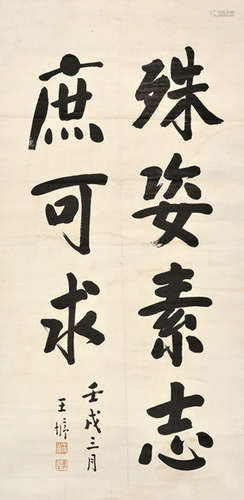 殊姿素志
庶可求
壬戌三月
王垿